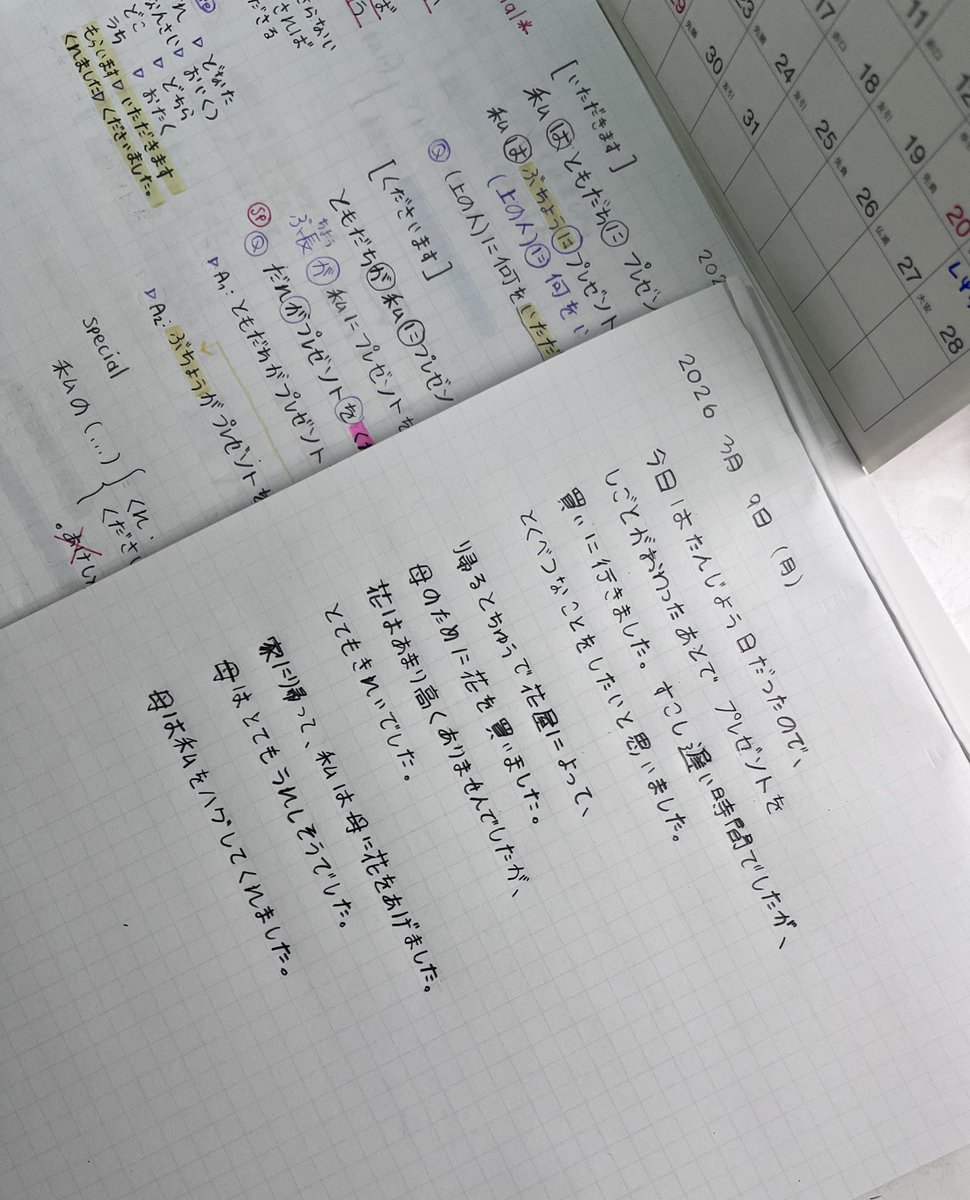 2026 3月 9日 (月)
今日はたんじょう日だったので、
しごとがおわったあとで プレゼントを
買いに行きました。すこし遅い時間でしたが、
とくべつなことをしたいと思いました。
帰るとちゅうで花屋によって、
母のために花を買いました。
花はあまり高くありませんでしたが、
とてもきれいでした。
家に帰って、私は母に花をあげました。
母はとてもうれしそうでした。
母は私をハグしてくれました。
[いただきます]
私はともだちにプレゼン
私はぶちょうにプレゼント
(上の人)に何を
Q (上の人)に何をいただ
[くださいます]
ともだちが私にプレゼン
ちょう
ぶ長が私にプレゼントを
SP Q だれがプレゼントをく
▷ A₁: ともだちがプレゼント
▷ A₂: ぶちょうがプレゼントを
special
私の(...) くれ
くださ
あげ
らない
されば
ださる
▷ どなた
▷ おいく)
▷ どちら
うち ▷ おたく
もらいます▷いただきます
くれました▷くださいました。
11
12
17
18
19
20
23
24
25
26
27
28
29
30
31
先勝
友引
仏滅
大安